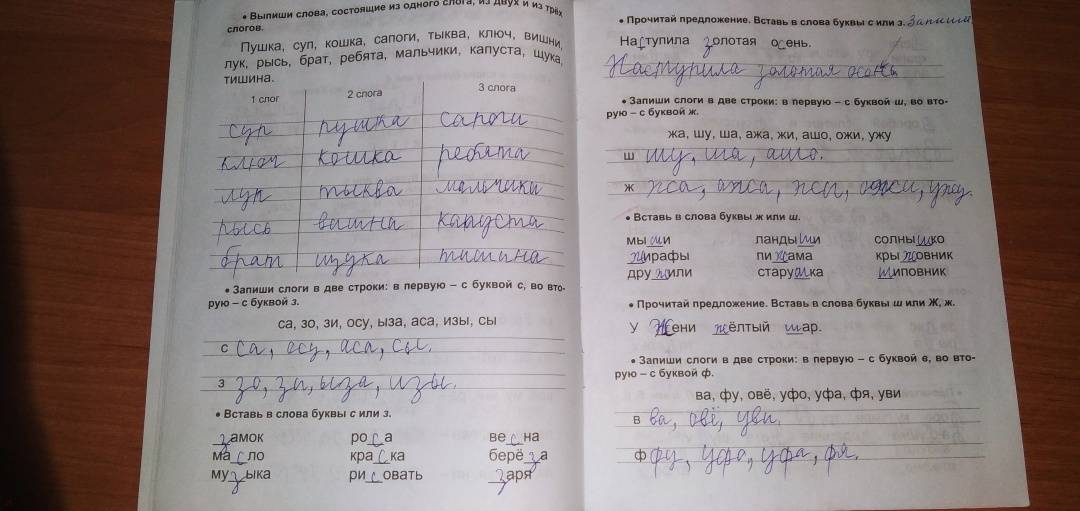 • Выпиши слова, состоящие из одного слога, из двух и из трёх
слогов.
Пушка, суп, кошка, сапоги, тыква, ключ, вишни,
лук, рысь, брат, ребята, мальчики, капуста, щука,
тишина.
1 слог 2 слога 3 слога
суп пушка сапоги
ключ кошка ребята
лук тыква мальчики
рысь вишна капуста
брат щука тишина
• Запиши слоги в две строки: в первую – с буквой с, во вто-
рую – с буквой з.
са, зо, зи, осу, ыза, аса, изы, сы
с са, осу, аса, сы.
з зо, зи, ыза, изы.
• Вставь в слова буквы с или з.
замок роса весна
масло краска берёза
музыка рисовать заря
• Прочитай предложение. Вставь в слова буквы с или з. Запиши
Наступила золотая осень.
Наступила золотая осень
• Запиши слоги в две строки: в первую – с буквой ш, во вто-
рую – с буквой ж.
жа, шу, ша, ажа, жи, ашо, ожи, ужу
ш шу, ша, ашо.
ж жа, ажа, жи, ожи, ужу.
• Вставь в слова буквы ж или ш.
мыши ландыши солнышко
жирафы пижама крыжовник
дружили старушка шиповник
• Прочитай предложение. Вставь в слова буквы ш или Ж, ж.
У Жени жёлтый шар.
• Запиши слоги в две строки: в первую – с буквой в, во вто-
рую – с буквой ф.
ва, фу, овё, уфо, уфа, фя, уви
в ва, овё, уви.
ф фу, уфо, уфа, фя.